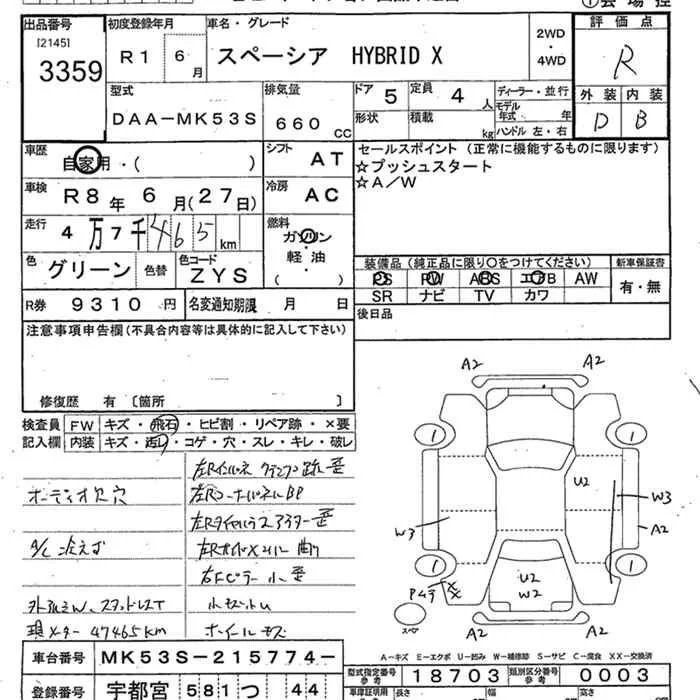 出品番号 初度登録年月 車名・グレード 2WD ・ 4WD 評価点
[2145] 3359 R1 6月 スペーシア HYBRID X R
型式 排気量 ドア 5 定員 4人 ディーラー・並行 外装 内装
DAA-MK53S 660cc 形状 積載 kg モデル年式 年 D B
ハンドル 左・右
車歴 自家用・( ) シフト AT セールスポイント(正常に機能するものに限ります)
☆プッシュスタート
☆A/W
車検 R8年6月(27日) 冷房 AC
走行 4万7千465km 燃料 ガソリン・軽油・( )
色 グリーン 色替 色コード ZYS
装備品(純正品に限り○をつけてください) 新車保証書
PS PW ABS エアB AW 有・無
SR ナビ TV カワ
R券 9310円 名変通知期限 月 日 後日品
注意事項申告欄(不具合内容等は具体的に記入して下さい)
修復歴 有〔箇所 〕
検査員 FW キズ・飛石・ヒビ割・リペア跡・×要
記入欄 内装 キズ・汚レ・コゲ・穴・スレ・キレ・破レ
オーディオ欠 穴
左Rコーナーパネル BP
A/C 冷えず
右Fピラー 小歪
現メーター 47465km
A2 A2
1 1
U2
W3 W3
A2
1 1
U2
W2
XX
スペア
A2 A2
A-キズ E-エクボ U-凹み W-補修跡 S-サビ C-腐食 XX-交換済
車台番号 MK53S-215774-
型式指定番号 参考 18703 類別区分番号 参考 0003
登録番号 宇都宮 581 つ 44
車庫証明用 参考 長さ 幅 高さ